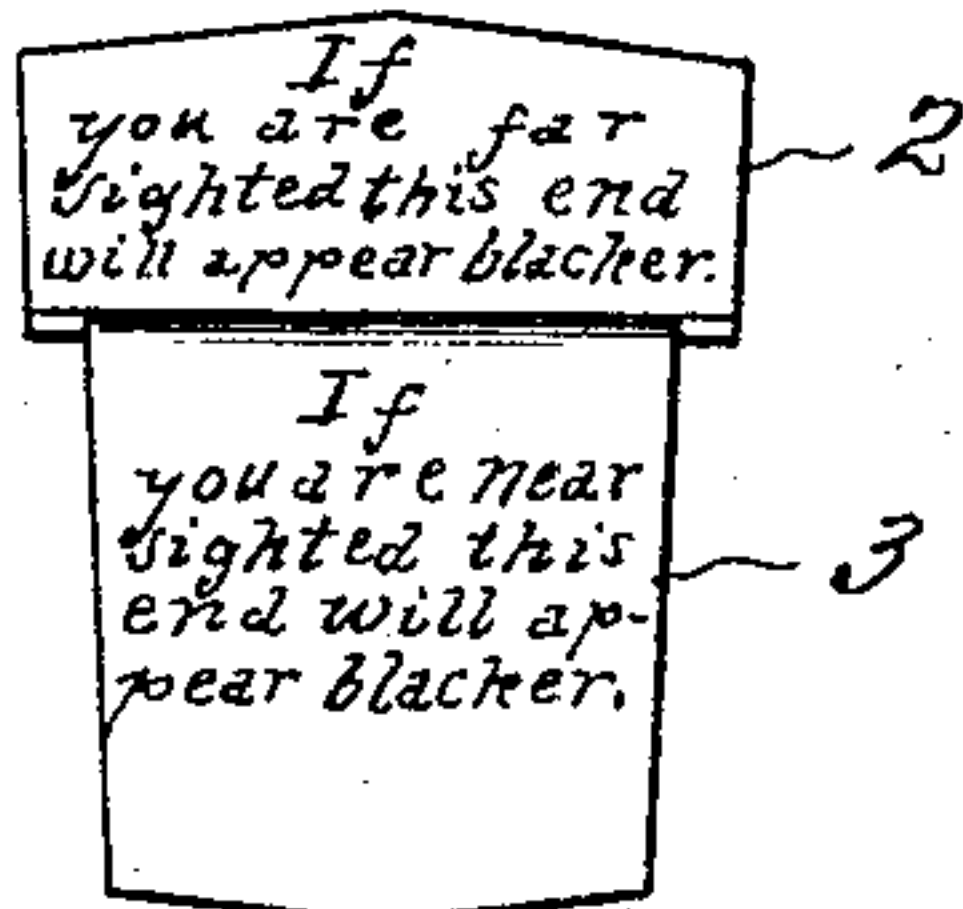 If
you are far
sighted this end
will appear blacker.
2
If
you are near
sighted this
end will ap-
pear blacker.
3